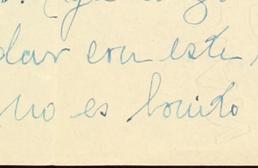 dar con este
no es bonito